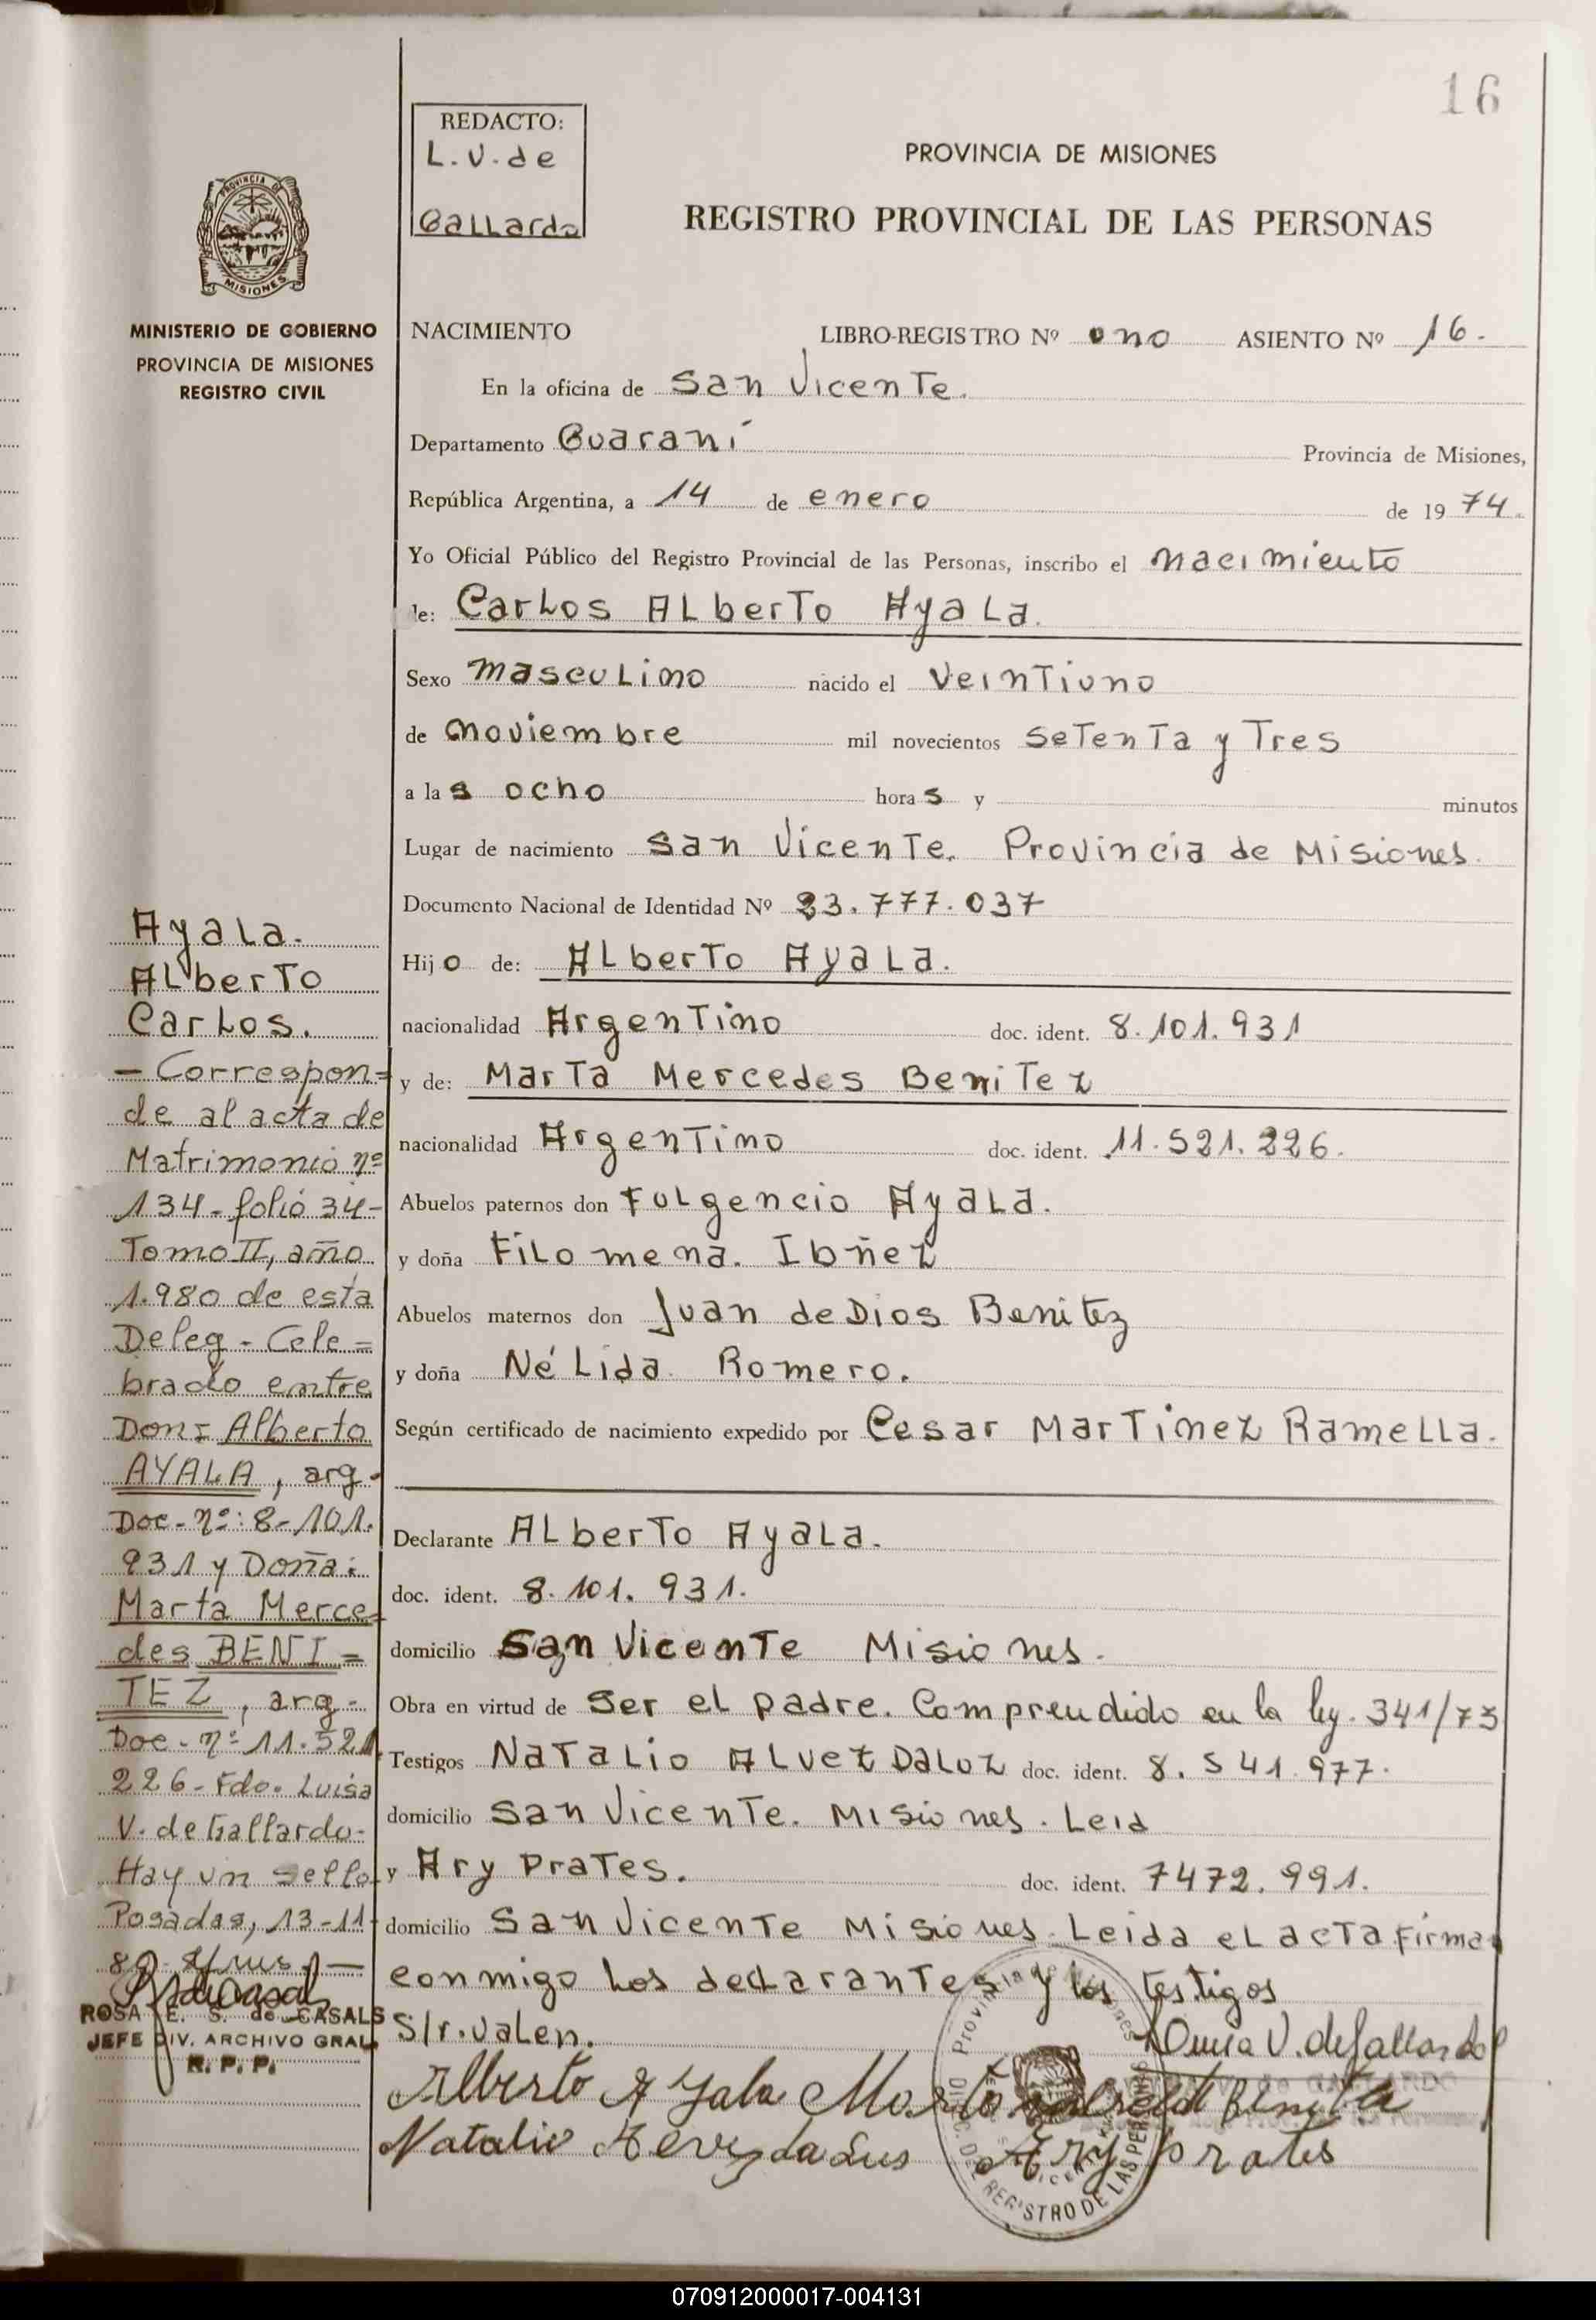 16
REDACTO:
L.V.de
Gallardo
PROVINCIA DE MISIONES
REGISTRO PROVINCIAL DE LAS PERSONAS
PROVINCIA DE
MISIONES
MINISTERIO DE GOBIERNO
PROVINCIA DE MISIONES
REGISTRO CIVIL
NACIMIENTO LIBRO-REGISTRO Nº uno ASIENTO Nº 16.
En la oficina de San Vicente.
Departamento Guaraní Provincia de Misiones,
República Argentina, a 14 de enero de 19 74.
Yo Oficial Público del Registro Provincial de las Personas, inscribo el nacimiento
de: Carlos Alberto Ayala.
Sexo masculino nacido el veintiuno
de noviembre mil novecientos setenta y Tres
a las ocho horas y minutos
Lugar de nacimiento San Vicente. Provincia de Misiones.
Documento Nacional de Identidad Nº 23.777.037
Hijo de: Alberto Ayala.
nacionalidad Argentino doc. ident. 8.101.931
y de: Marta Mercedes Benitez
nacionalidad Argentino doc. ident. 11.521.226.
Abuelos paternos don Fulgencio Ayala.
y doña Filomena. Ibñez
Abuelos maternos don Juan de Dios Benitez
y doña Nélida Romero.
Según certificado de nacimiento expedido por Cesar Martinez Ramella.
Declarante Alberto Ayala.
doc. ident. 8.101.931.
domicilio San Vicente Misiones.
Obra en virtud de ser el padre. Comprendido en la ley. 341/73
Testigos Natalio Alvez Daluz doc. ident. 8.541.977.
domicilio San Vicente. Misiones. Leid
y Ary Prates. doc. ident. 7472.991.
domicilio San Vicente Misiones. Leida el acta firma
conmigo los declarantes y los testigos
S/r.valen.
Luisa V. de Gallardo
Alberto Ayala Marta
Natalio Ary Prates
Ayala.
Alberto
Carlos.
- Correspon=
de al acta de
Matrimonio nº
134-folio 34-
Tomo II, año
1.980 de esta
Deleg - Cele=
brado entre
Don: Alberto
AYALA, arg.
Doc-nº: 8-101.
931 y Doña:
Marta Merce=
des BENI=
TEZ, arg-
Doc-nº 11.521.
226-Fdo. Luisa
V. de Gallardo-
Hay un sello
Posadas, 13-11-
80-
ROSA E. S. de CASALS
JEFE DIV. ARCHIVO GRAL.
R. P. P.
070912000017-004131